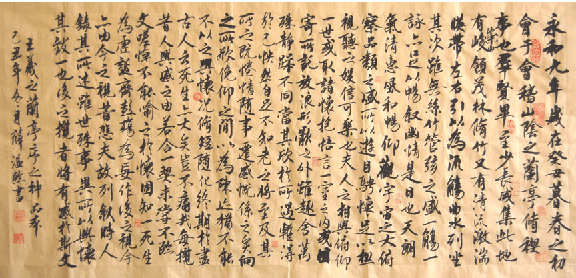 永和九年歲在癸丑暮春之初
會于會稽山陰之蘭亭脩禊
事也羣賢畢至少長咸集此地
有峻領茂林脩竹又有清流激湍
暎帶左右引以為流觴曲水列坐
其次雖無絲竹管絃之盛一觴一
詠亦足以暢叙幽情是日也天朗
氣清惠風和暢仰觀宇宙之大俯
察品類之盛所以遊目騁懷足以極
視聽之娛信可樂也夫人之相與俯仰
一世或取諸懷抱悟言一室之內或因
寄所託放浪形骸之外雖趣舍萬
殊靜躁不同當其欣於所遇暫得
於己怏然自足不知老之將至及其
所之既惓情隨事遷感慨係之矣向
之所欣俛仰之間以為陳迹猶不能
不以之興懷況脩短隨化終期於盡
古人云死生亦大矣豈不痛哉每攬
昔人興感之由若合一契未嘗不臨
文嗟悼不能喻之於懷固知一死生
為虛誕齊彭殤為妄作後之視今
亦由今之視昔悲夫故列叙時人
錄其所述雖世殊事異所以興懷
其致一也後之攬者亦將有感於斯文
王羲之蘭亭序之神品
乙丑年冬月 書